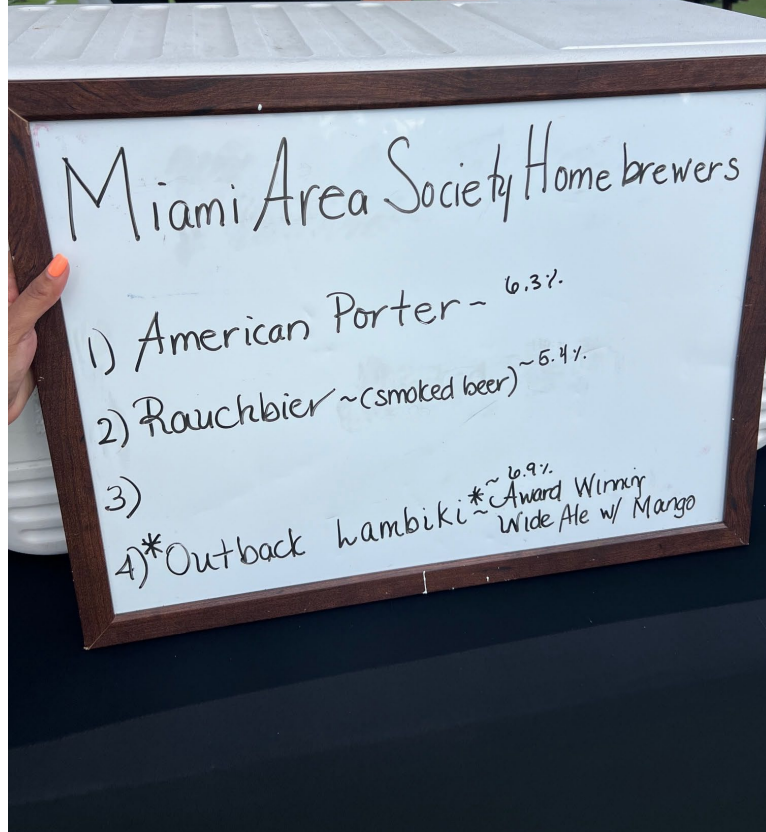 Miami Area Society Homebrewers
1) American Porter ~ 6.3%
2) Rauchbier ~ (smoked beer) ~ 5.4%
3)
4) *Outback Lambiki* ~ 6.9%
~ Award Winning
Wide Ale w/ Mango